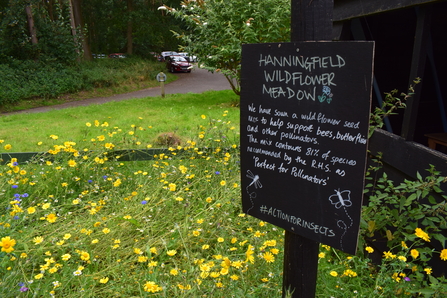 HANNINGFIELD
WILDFLOWER
MEADOW
We have sown a wildflower seed
mix to help support bees, butterflies
and other pollinators.
The mix contains 81% of species
recommended by the R.H.S. as
'Perfect for Pollinators'
#ACTIONFORINSECTS